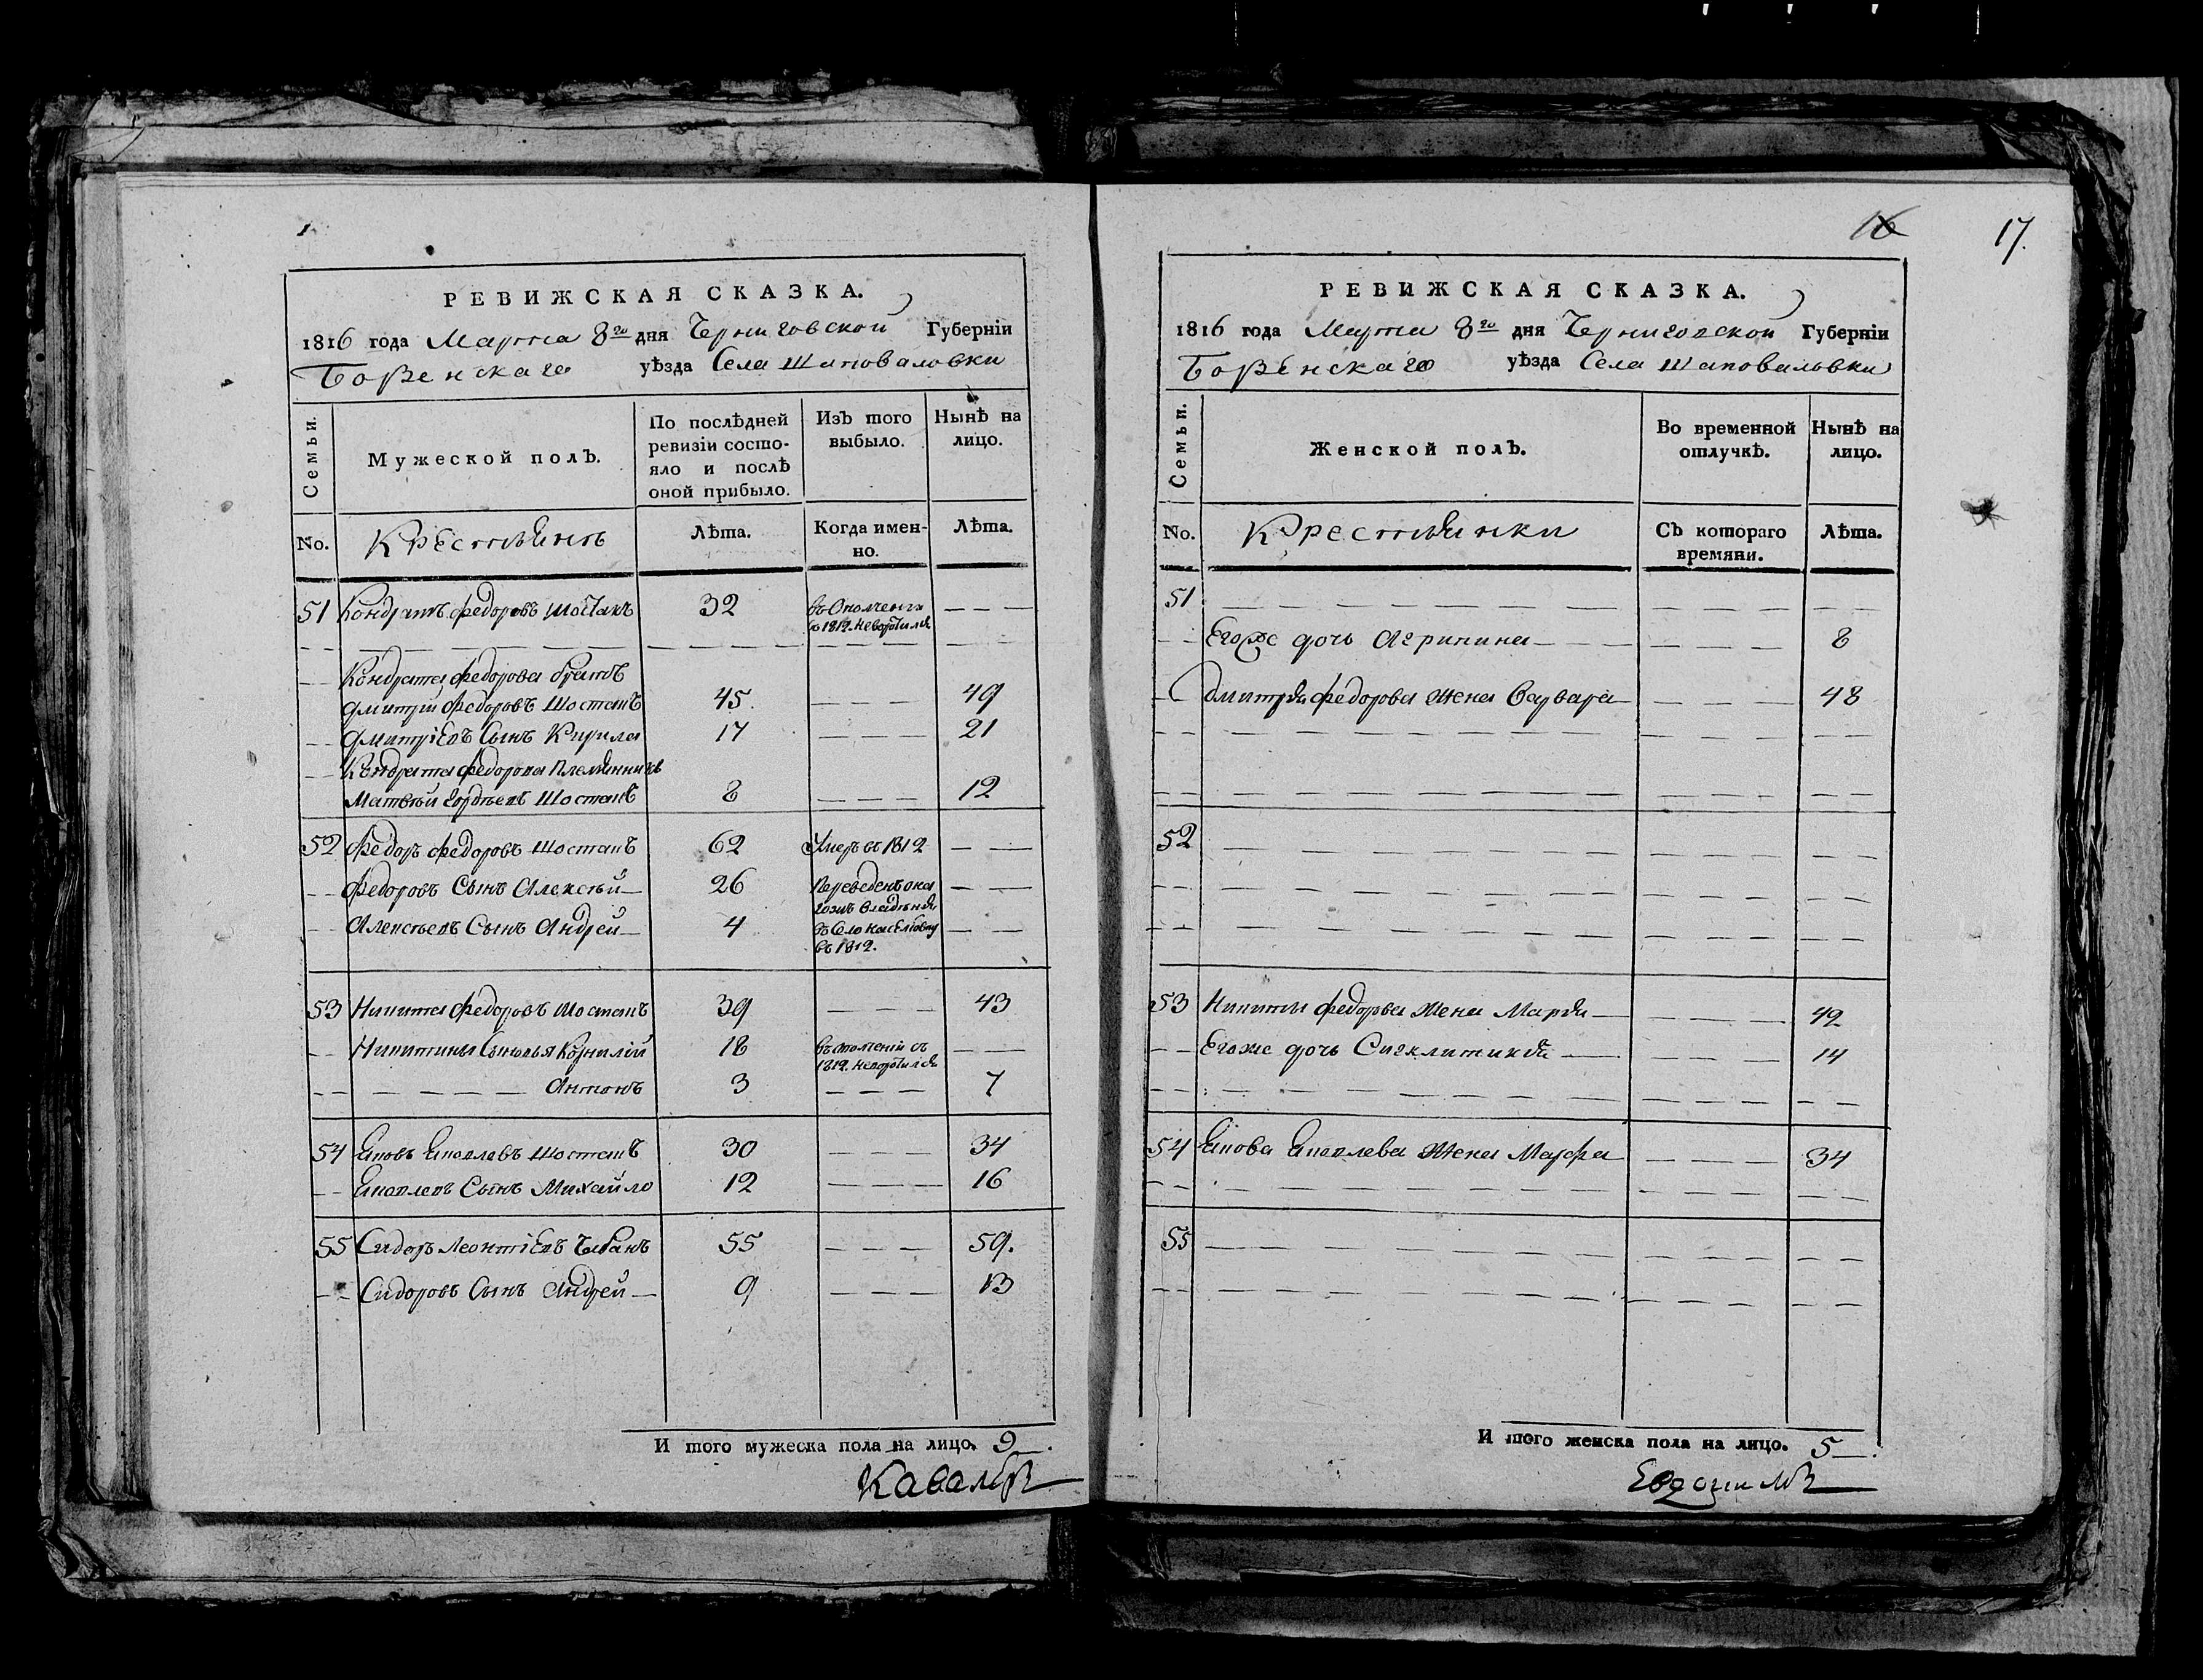 РЕВИЖСКАЯ СКАЗКА.
1816 года Марта 8го дня Черниговской Губерніи
Борзенскаго уѣзда Села Шаповаловки
Семьи.
Мужеской полъ.
По послѣдней ревизіи состояло и послѣ оной прибыло.
Изъ того выбыло.
Нынѣ на лицо.
No. Крестьянъ Лѣта. Когда именно. Лѣта.
51 Кондратъ Федоровъ Шостакъ 32 въ Ополченіи
с 1812. неворотился
Кондрата Федорова братъ
Дмитрій Федоровъ Шостакъ 45 49
Дмитріевъ Сынъ Кирила 17 21
Кондрата Федорова Племянникъ
Матвѣй Гордѣевъ Шостакъ 8 12
52 Федоръ Федоровъ Шостакъ 62 Умеръ въ 1812
Федоровъ Сынъ Алексѣй 26 Переведенъ
Алексѣевъ Сынъ Андрей 4 въ Село
въ 1812.
53 Никита Федоровъ Шостакъ 39 43
Никитины Сыновья Корнилій 18 въ ополченіи съ
1812. неворотился
Антонъ 3 7
54 Яковъ Яковлевъ Шостакъ 30 34
Яковлевъ Сынъ Михайло 12 16
55 Сидоръ Леонтіевъ Чабанъ 55 59.
Сидоровъ Сынъ Андрей 9 13
И того мужеска пола на лицо. 9
16 17.
РЕВИЖСКАЯ СКАЗКА.
1816 года Марта 8го дня Черниговской Губерніи
Борзенскаго уѣзда Села Шаповаловки
Семьи.
Женской полъ.
Во временной отлучкѣ.
Нынѣ на лицо.
No. Крестьянки Съ котораго времяни. Лѣта.
51
Егоже дочь Агрипина 8
Дмитрія Федорова жена Варвара 48
52
53 Никиты Федорова Жена Марія 42
Егоже дочь Сигклитикія 14
54 Якова Яковлева Жена Марфа 34
55
И того женска пола на лицо. 5